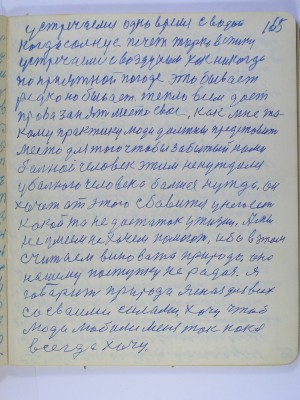 165
устречаеми одно время с водой
когда солнце печет жарко в спину
устречаеми с воздухом как никогда
по приятной погоде это бывает
редко но бывает. тепло всем дает
права занять место свое. , как мне та-
кому практику люди должны предоставить
место для того чтобы забытый ними
больной человек этим не нуждался
у больного человека большая нужда, он
хочет от этого избавится у него есть
какой то не достаток у жизни, А мы
не умеем не хочем помочь, ибо в этом
считаем виновата природа, она
нашему поступку не рада. Я
говорит природа Я для всех
со своими силами, хочу чтоб
люди любили меня так как я
всегда хочу.